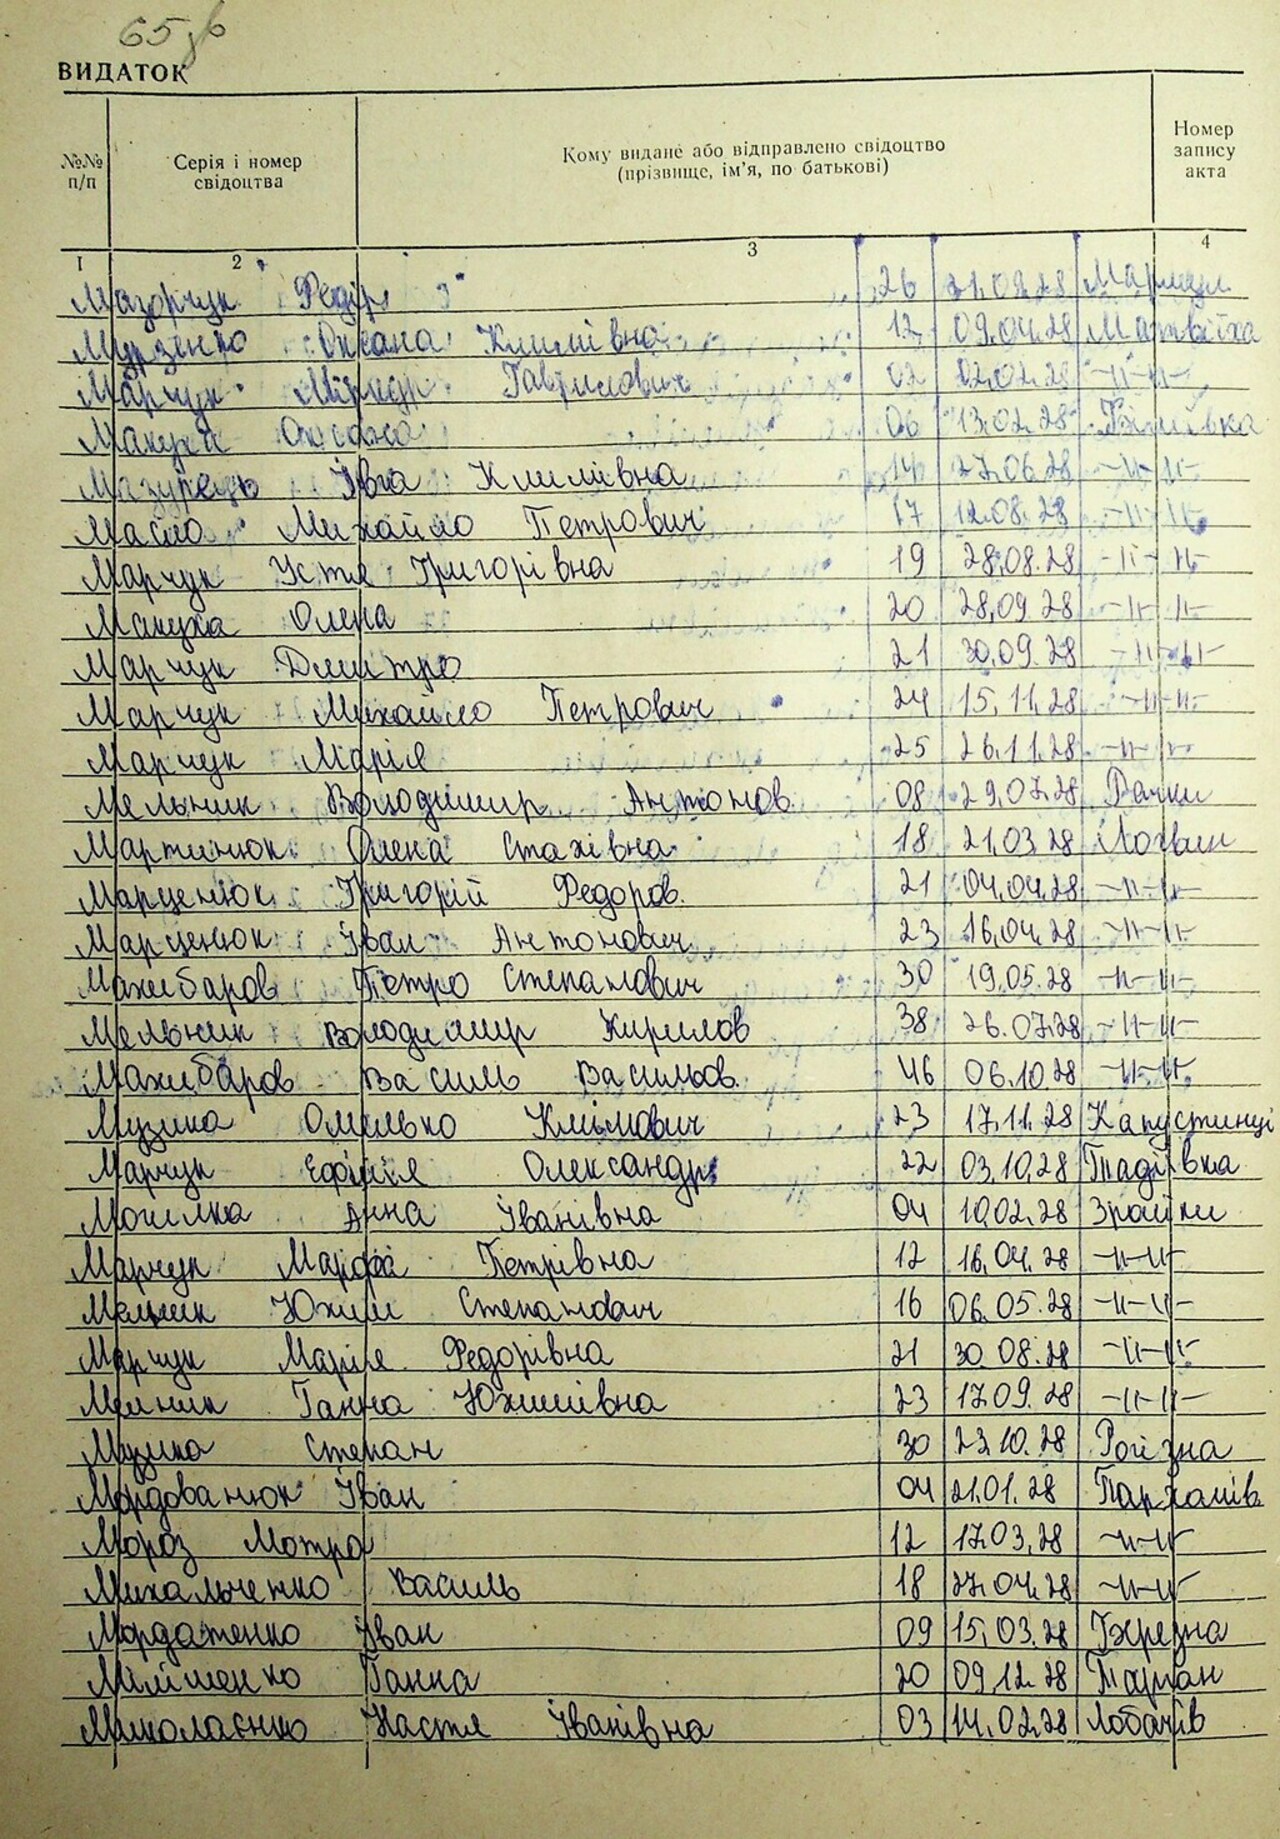 65 зв
ВИДАТОК
№№ п/п
Серія і номер свідоцтва
Кому видане або відправлено свідоцтво (прізвище, ім'я, по батькові)
Номер запису акта
1 2 3 4
Мазорчук Федір 26 21.02.28
Мурзенко Оксана Климівна 12 09.04.28 Матвіїха
Марчук Гаврилович 02 02.02.28 -11-11-
Оксана 06 13.02.28
Мазурець Івга Климівна 14 27.06.28 -11-11-
Масло Михайло Петрович 17 12.08.28 -11-11-
Марчук Устя Григорівна 19 28.08.28 -11-11-
Макуха Олена 20 28.09.28 -11-11-
Марчук Дмитро 21 30.09.28 -11-11-
Марчук Михайло Петрович 24 15.11.28 -11-11-
Марчук Марія 25 26.11.28 -11-11-
Мельник Володимир Антонов 08 29.07.28 Рачки
Мартинюк Олена Стахівна 18 21.03.28 Логвин
Марценюк Григорій Федоров. 21 04.04.28 -11-11-
Марценюк Іван Антонович 23 16.04.28 -11-11-
Махибаров Петро Степанович 30 19.05.28 -11-11-
Мельник Володимир Кирилов 38 26.07.28 -11-11-
Махибаров Василь Васильов. 46 06.10.28 -11-11-
Музика Омелько Клімович 23 17.11.28 Капустинці
Марчук Ефімія Олександр. 22 03.10.28 Тадіївка
Могилка Анна Іванівна 04 10.02.28 Зрайки
Марчук Марфа Петрівна 12 16.04.28 -11-11-
Мельник Юхим Степанович 16 06.05.28 -11-11-
Марчук Марія Федорівна 21 30.08.28 -11-11-
Мельник Ганна Юхимівна 23 17.09.28 -11-11-
Музика Степан 30 23.10.28 Рогізна
Мордованюк Іван 04 21.01.28 Пархомів.
Мороз Мотря 12 17.03.28 -11-11-
Михальченко Василь 18 27.04.28 -11-11-
Мордатенко Іван 09 15.03.28 Бхрезна
Ганна 20 09.12.28 Тарган
Миколаєнко Настя Іванівна 03 14.02.28 Лобачів